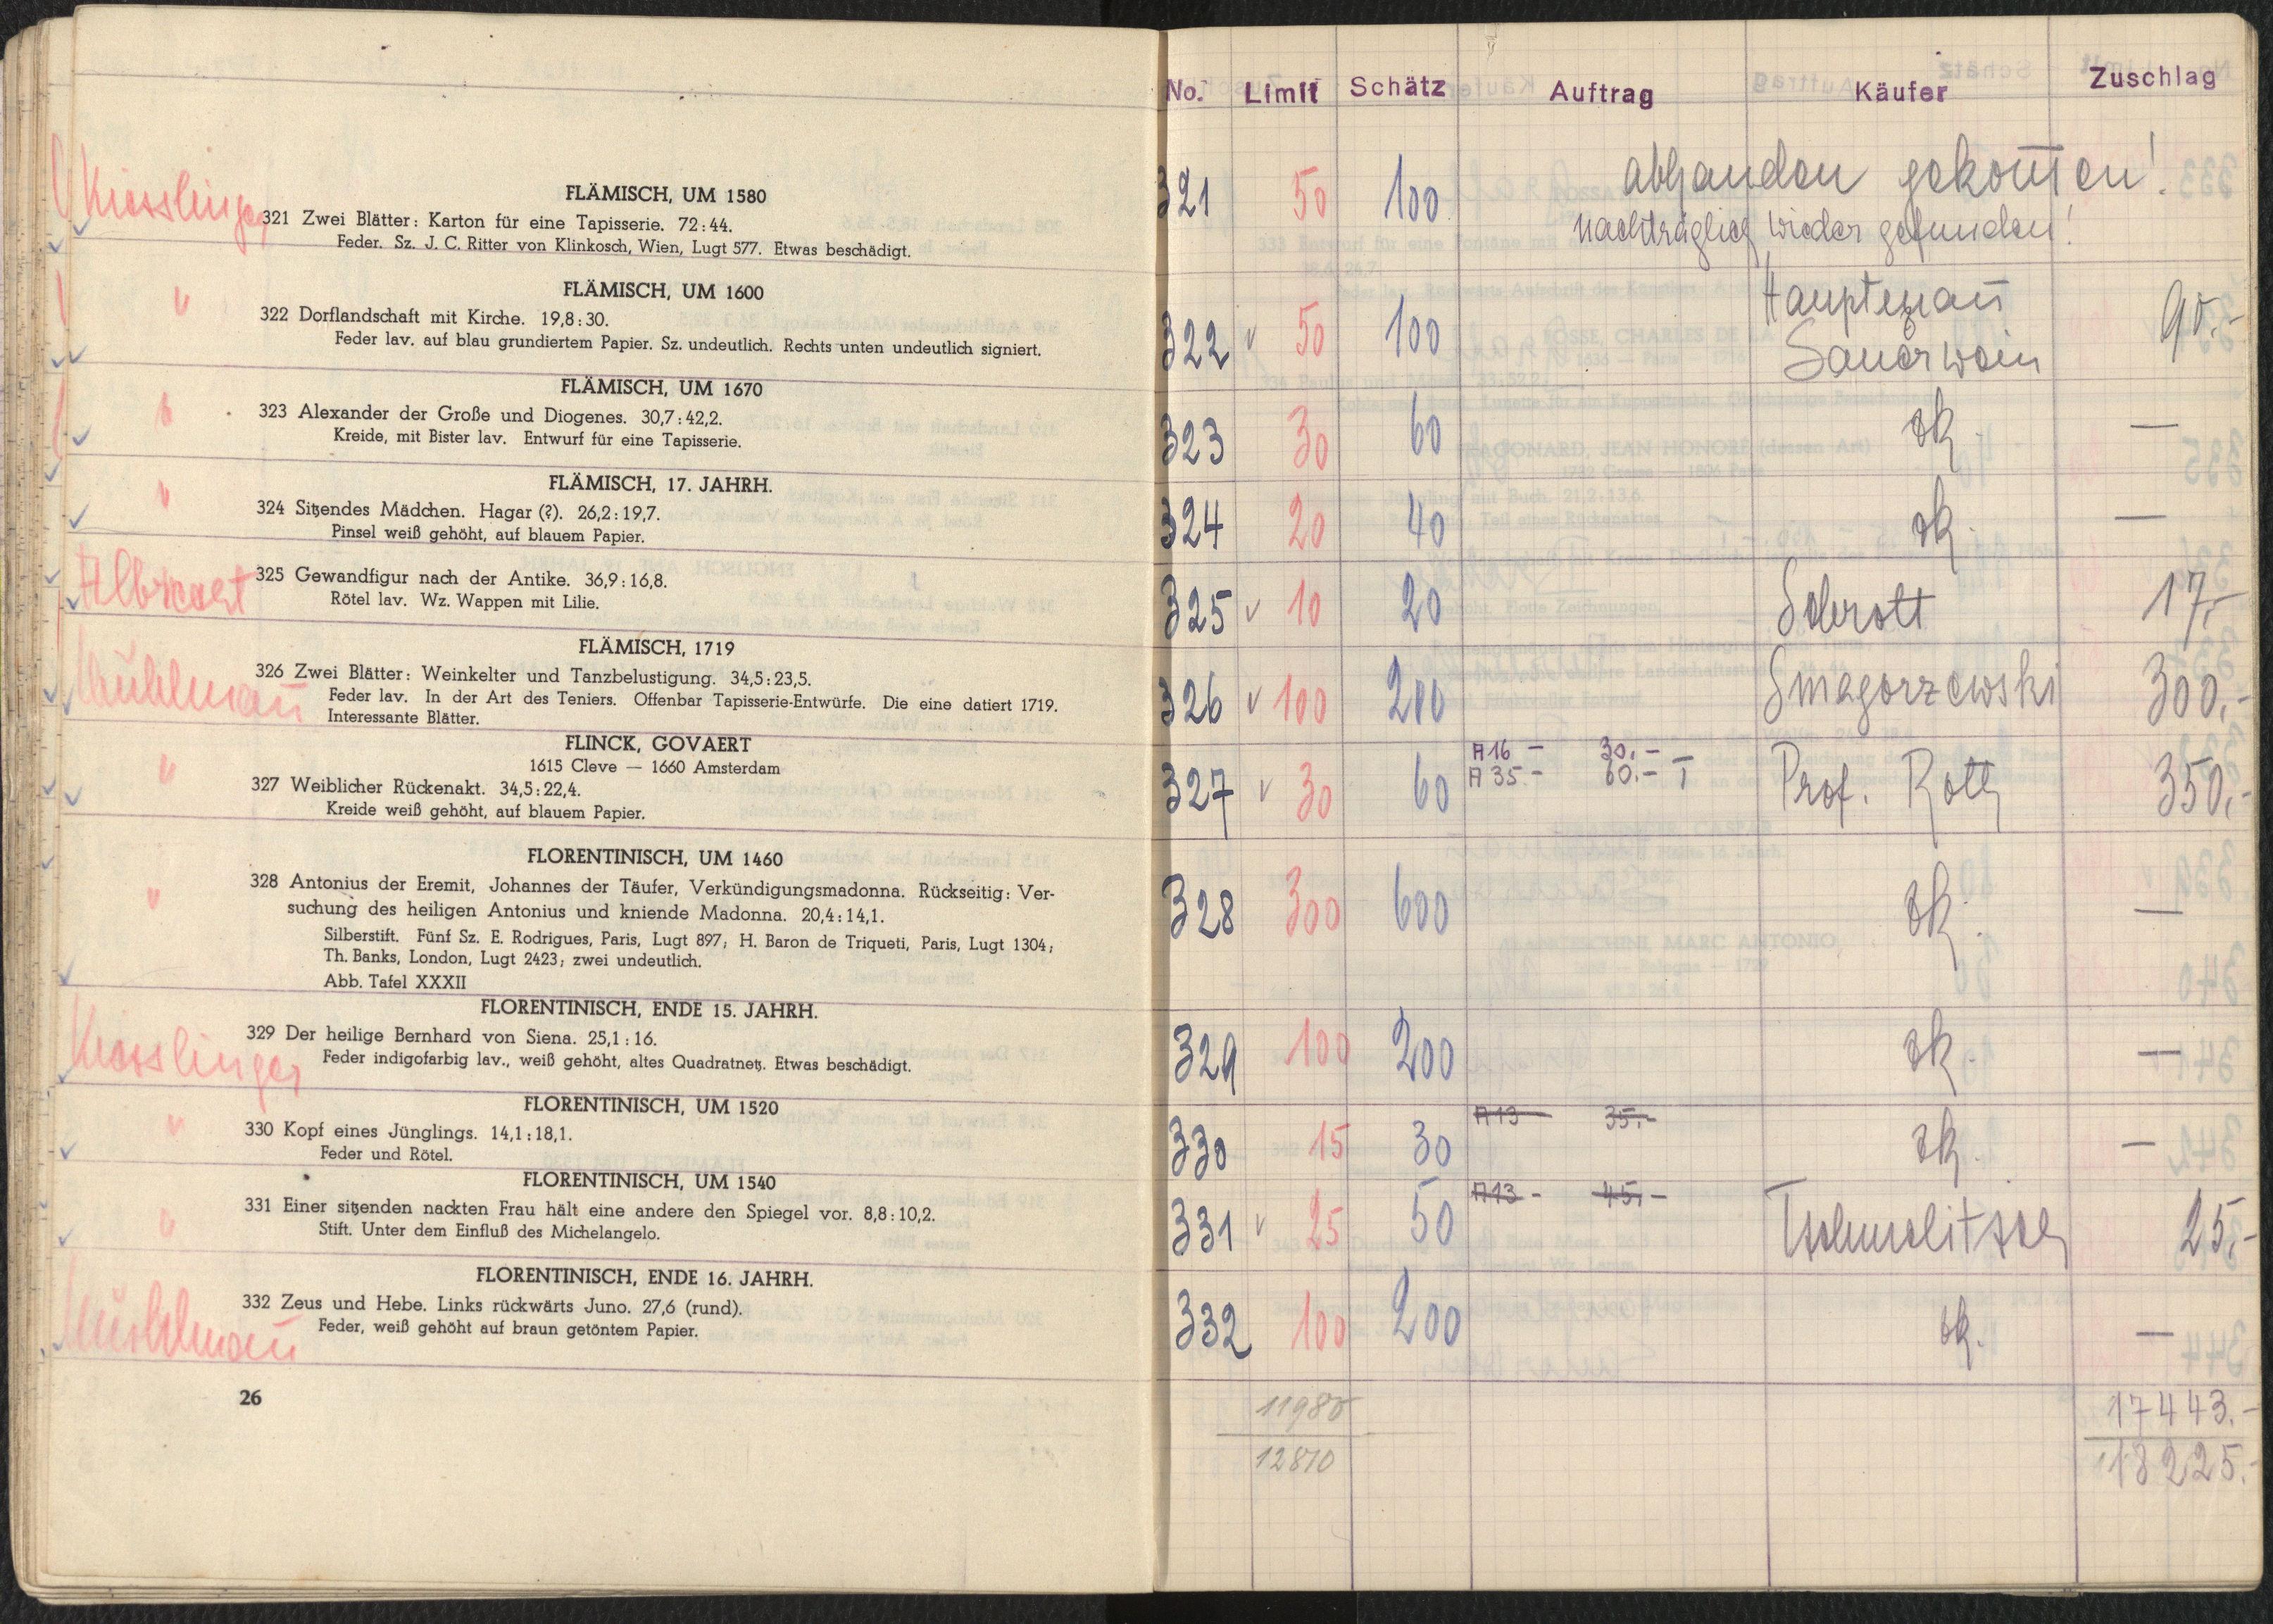 Kiesslinger
FLÄMISCH, UM 1580
321 Zwei Blätter: Karton für eine Tapisserie. 72:44.
Feder. Sz. J. C. Ritter von Klinkosch, Wien, Lugt 577. Etwas beschädigt.
"
FLÄMISCH, UM 1600
322 Dorflandschaft mit Kirche. 19,8:30.
Feder lav. auf blau grundiertem Papier. Sz. undeutlich. Rechts unten undeutlich signiert.
"
FLÄMISCH, UM 1670
323 Alexander der Große und Diogenes. 30,7:42,2.
Kreide, mit Bister lav. Entwurf für eine Tapisserie.
"
FLÄMISCH, 17. JAHRH.
324 Sitzendes Mädchen. Hagar (?). 26,2:19,7.
Pinsel weiß gehöht, auf blauem Papier.
325 Gewandfigur nach der Antike. 36,9:16,8.
Rötel lav. Wz. Wappen mit Lilie.
Mühlmañ
FLÄMISCH, 1719
326 Zwei Blätter: Weinkelter und Tanzbelustigung. 34,5:23,5.
Feder lav. In der Art des Teniers. Offenbar Tapisserie-Entwürfe. Die eine datiert 1719.
Interessante Blätter.
"
FLINCK, GOVAERT
1615 Cleve — 1660 Amsterdam
327 Weiblicher Rückenakt. 34,5:22,4.
Kreide weiß gehöht, auf blauem Papier.
"
FLORENTINISCH, UM 1460
328 Antonius der Eremit, Johannes der Täufer, Verkündigungsmadonna. Rückseitig: Ver-
suchung des heiligen Antonius und kniende Madonna. 20,4:14,1.
Silberstift. Fünf Sz. E. Rodrigues, Paris, Lugt 897; H. Baron de Triqueti, Paris, Lugt 1304;
Th. Banks, London, Lugt 2423; zwei undeutlich.
Abb. Tafel XXXII
Kiesslinger
FLORENTINISCH, ENDE 15. JAHRH.
329 Der heilige Bernhard von Siena. 25,1:16.
Feder indigofarbig lav., weiß gehöht, altes Quadratnetz. Etwas beschädigt.
"
FLORENTINISCH, UM 1520
330 Kopf eines Jünglings. 14,1:18,1.
Feder und Rötel.
"
FLORENTINISCH, UM 1540
331 Einer sitzenden nackten Frau hält eine andere den Spiegel vor. 8,8:10,2.
Stift. Unter dem Einfluß des Michelangelo.
Mühlmañ
FLORENTINISCH, ENDE 16. JAHRH.
332 Zeus und Hebe. Links rückwärts Juno. 27,6 (rund).
Feder, weiß gehöht auf braun getöntem Papier.
26
No. Limit Schätz Auftrag Käufer Zuschlag
321 50 100 abhanden gekom̄en!
nachträglich wieder gefunden!
322 50 100 Hauptmañ Sauerwein 90.-
323 30 60 zk. —
324 20 40 zk. —
325 10 20 Schrott 17.-
326 100 200 Smagorzewski 300.-
A 16 — 30.-
327 30 60 A 35.- 60.- T Prof. Roth 350.-
328 300 600 zk. —
329 100 200 zk. —
A 13 — 35.-
330 15 30 zk. —
A 13 - 45.-
331 25 50 25.-
332 100 200 zk. —
11980 17443.-
12810 18225.-